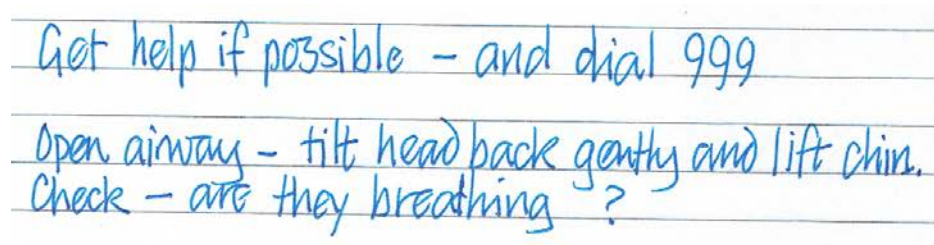 Get help if possible - and dial 999
Open airway - tilt head back gently and lift chin.
Check - are they breathing ?